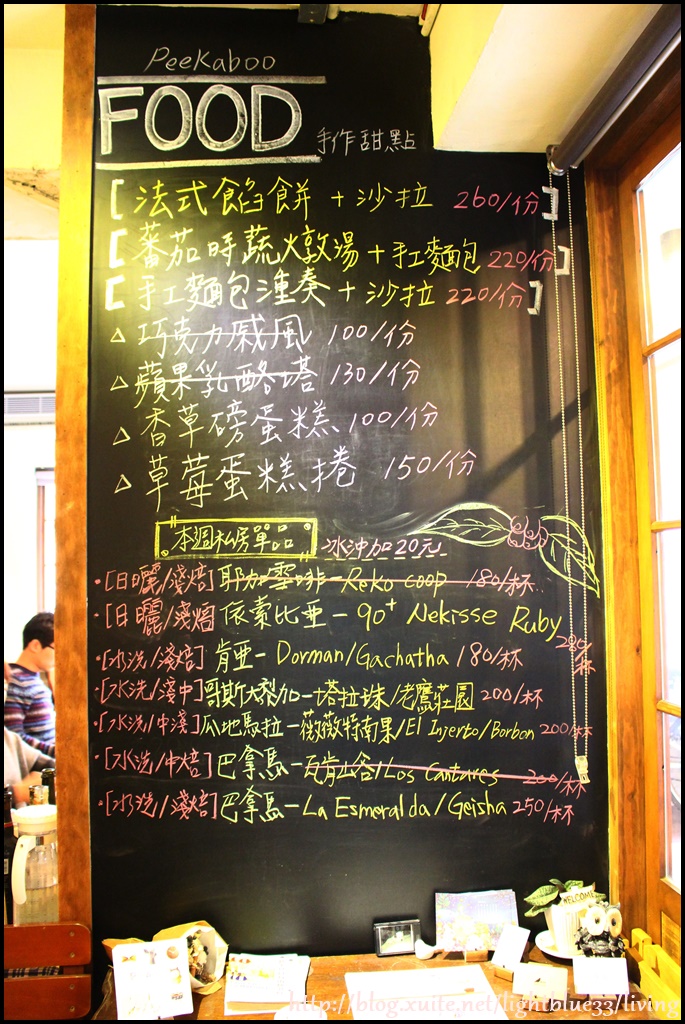 Peekaboo
FOOD 手作甜點
[法式餡餅 + 沙拉 260/份]
[蕃茄時蔬火敦湯 + 手工麵包 220/份]
[手工麵包湩奏 + 沙拉 220/份]
△ 巧克力戚風 100/份
△ 蘋果乳酪塔 130/份
△ 香草磅蛋糕 100/份
△ 草莓蛋糕捲 150/份
"本週私房單品" 冰沖加20元
·[日曬/淺焙] 耶加雪啡-Reko coop 180/杯
·[日曬/淺焙] 依索比亞-90+ Nekisse Ruby 280/杯
·[水洗/淺焙] 肯亞-Dorman/Gachatha 180/杯
·[水洗/淺中] 哥斯大黎加-塔拉珠/老鷹莊園 200/杯
·[水洗/中淺] 瓜地馬拉-薇薇特南果/El Injerto/Borbon 200/杯
·[水洗/中焙] 巴拿馬-瓦肯山谷/Los Cantares 200/杯
·[水洗/淺焙] 巴拿馬-La Esmeralda/Geisha 250/杯
WELCOME
http://blog.xuite.net/lightblue33/living